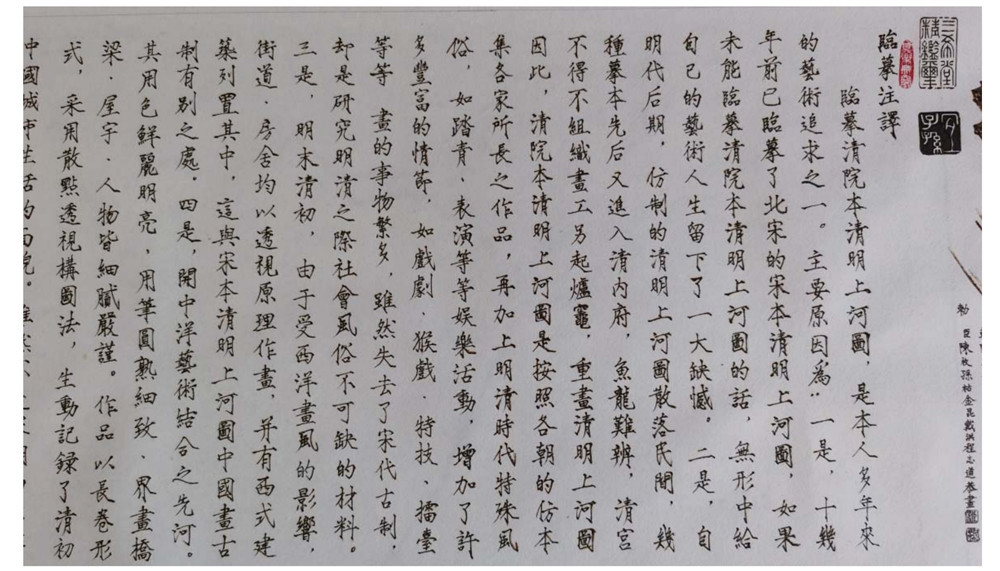 臣陳枚孫祜金昆戴洪程志道恭畫
勅
三希堂精鑑璽
宜子孫
臨摹注譯
臨摹清院本清明上河圖，是本人多年來
的藝術追求之一。主要原因為：一是，十幾
年前已臨摹了北宋的宋本清明上河圖，如果
未能臨摹清院本清明上河圖的話，無形中給
自己的藝術人生留下了一大缺憾。二是，自
明代后期，仿制的清明上河圖散落民間，幾
種摹本先后又進入清内府，魚龍難辨，清宮
不得不組織畫工另起爐竈，重畫清明上河圖
因此，清院本清明上河圖是按照各朝的仿本
集各家所長之作品，再加上明清時代特殊風
俗，如踏青、表演等等娛樂活動，增加了許
多豐富的情節，如戲劇、猴戲、特技、擂臺
等等 畫的事物繁多，雖然失去了宋代古制，
却是研究明清之際社會風俗不可缺的材料。
三是，明末清初，由于受西洋畫風的影響，
街道、房舍均以透視原理作畫，并有西式建
築列置其中，這與宋本清明上河圖中國畫古
制有别之處。四是，開中洋藝術結合之先河。
其用色鮮麗明亮，用筆圓熟細致、界畫橋
梁、屋宇、人物皆細膩嚴謹。作品以長卷形
式，采用散點透視構圖法，生動記録了清初
中國城市生活的面貌。雖然